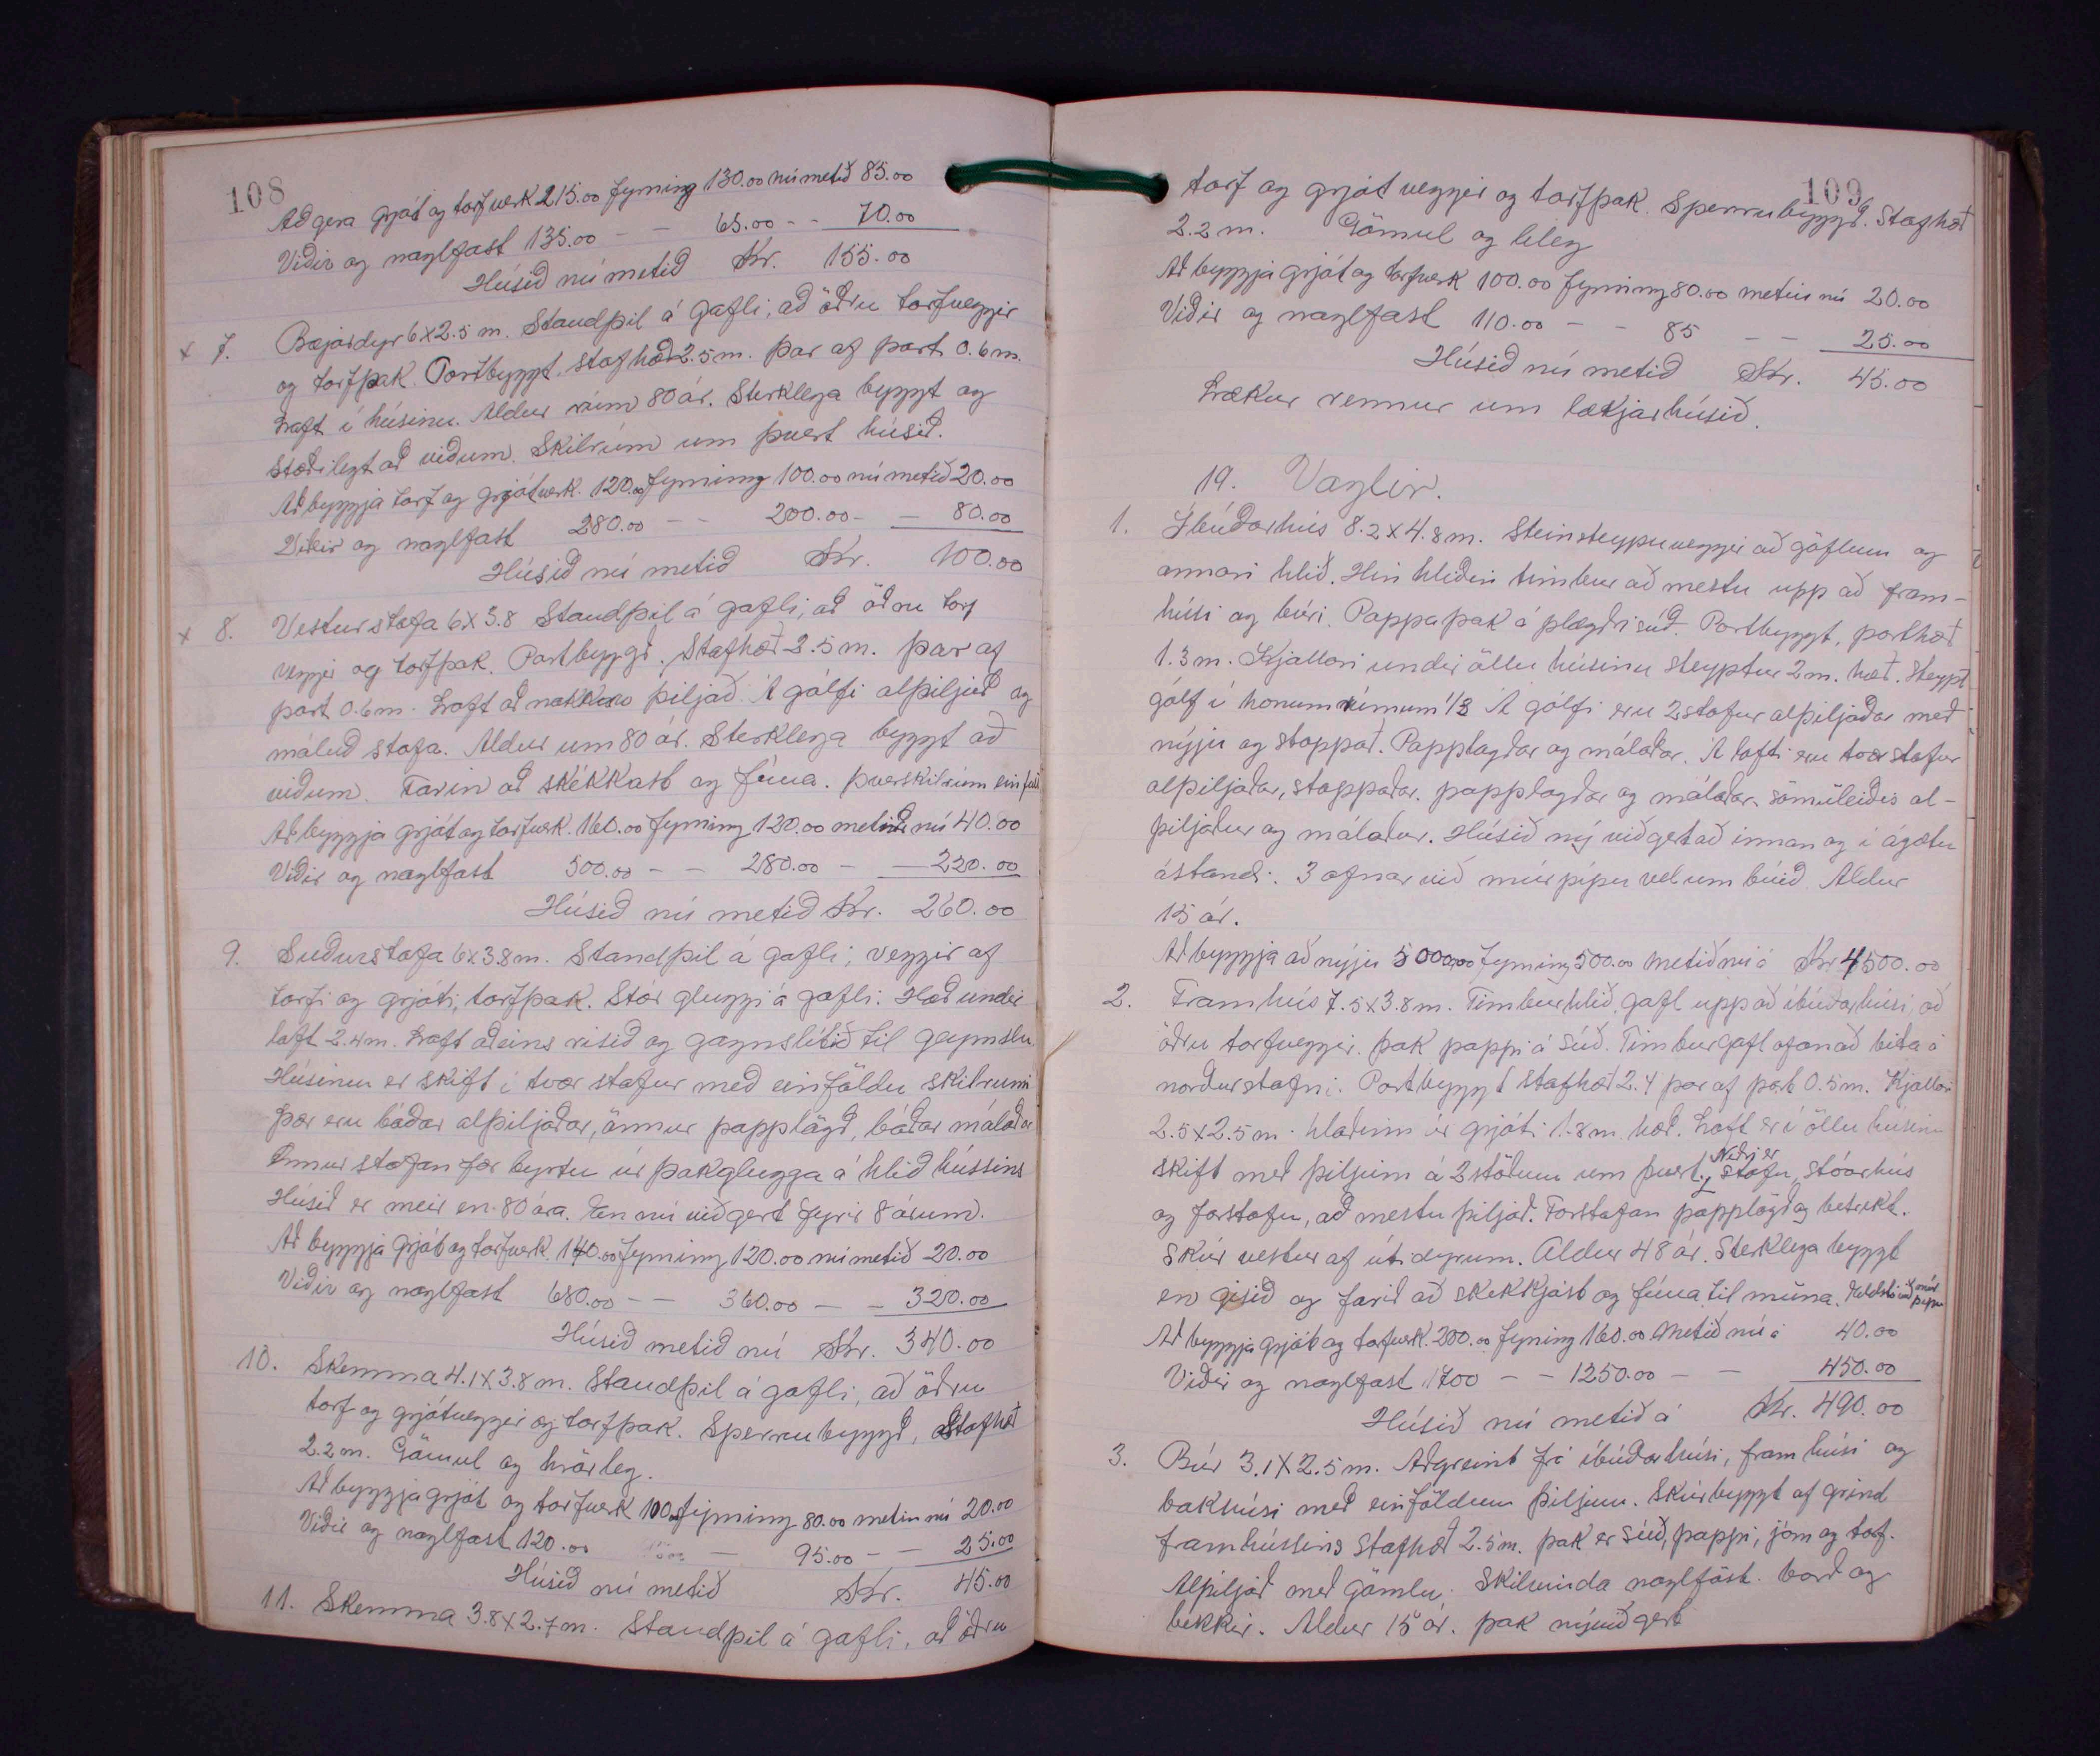 108
Að gera grjót og torfverk 215.00 fyrning 130.00 nú metið 85.00
Viðir og naglfast 135.00 - - 65.00 - - 70.00
Húsið nú metið Kr. 155.00
x 7. Bæjardyr 6x2.5 m. Standþil á gafli, að öðru torfveggir
og torfþak. Portbyggt. stafhæð 2.5 m. þar af port 0.6 m.
Loft í húsinu. Aldur rúm 80 ár. Sterklega byggt og
stæðilegt að viðum. Skilrúm um þvert húsið.
Að byggja torf og grjótverk. 120.00 fyrning 100.00 nú metið 20.00
Viðir og naglfast 280.00 - - 200.00 - - 80.00
Húsið nú metið Kr. 100.00
x 8. Vesturstofa 6x3.8 Standþil á gafli, að öðru torf
veggir og torfþak. Portbyggð. Stafhæð 2.5 m. þar af
port 0.6 m. Loft að nokkru þiljað. Á gólfi alþiljuð og
máluð stofa. Aldur um 80 ár. Sterklega byggt að
viðum. Farin að skekkast og fúna. þverskilrúm einfalt
Að byggja grjót og torfverk. 160.00 fyrning 120.00 metið nú 40.00
Viðir og naglfast 500.00 - - 280.00 - - 220.00
Húsið nú metið Kr. 260.00
9. Suðurstofa 6x3.8 m. Standþil á gafli, veggir af
torfi og grjóti, torfþak. Stór gluggi á gafli. Hæð undir
loft 2.4 m. Loft aðeins risið og gagnslítið til geymslu.
Húsinu er skift í tvær stofur með einföldu skilrúmi
Þær eru báðar alþiljaðar, önnur papplögð, báðar málaðar
Önnur stofan fær byrtu úr þakglugga á hlið hússins
Húsið er meir en 80 ára. En nú viðgert fyrir 8 árum.
Að byggja grjót og torfverk. 140.00 fyrning 120.00 nú metið 20.00
Viðir og naglfast 680.00 - - 360.00 - - 320.00
Húsið metið nú Kr. 340.00
10. Skemma 4.1x3.8 m. Standþil á gafli, að öðru
torf og grjótveggir og torfþak. Sperrubyggð, Stafhæð
2.2 m. Gömul og hrörleg.
Að byggja grjót og torfverk 100.00 fyrning 80.00 metin nú 20.00
Viðir og naglfast 120.00 - 95.00 - - 25.00
Húsið nú metið Kr. 45.00
11. Skemma 3.8x2.7 m. Standþil á gafli, að öðru
109
torf og grjót veggir og torfþak. Sperrubyggð. Stafhæð
2.2 m. Gömul og léleg
Að byggja grjót og torfverk 100.00 fyrning 80.00 metin nú 20.00
Viðir og naglfast 110.00 - - 85 - - 25.00
Húsið nú metið Kr. 45.00
Lækur rennur um lækjarhúsið.
19. Vaglir.
1. Íbúðarhús 8.2x4.8 m. Steinsteypuveggir að göflum og
annari hlið. Hin hliðin timbur að mestu upp að fram-
húsi og búri. Pappaþak á plægðri súð. Portbyggt, porthæð
1.3 m. Kjallari undir öllu húsinu steyptur 2 m. hæð. Steypt
gólf í honum rúmum 1/3 Á gólfi eru 2 stofur alþiljaðar með
nýju og stoppað. Papplagðar og málaðar. Á lofti eru tvær stofur
alþiljaðar, stoppaðar. papplagðar og málaðar. sömuleiðis al-
þiljaður og málaður. Húsið ný viðgert að innan og í ágætu
ástandi. 3 ofnar við múrpípu vel um búið. Aldur
15 ár.
Að byggja að nýju 5000.00 fyrning 500.00 metið nú á Kr 4500.00
2. Framhús 7.5x3.8 m. Timburhlið, gafl upp að íbúðarhúsi, að
öðru torfveggir. Þak pappi á súð. Timburgafl ofan að bita á
norðurstafni. Portbyggt stafhæð 2.4 þar af port 0.5 m. Kjallari
2.5x2.5 m. hlaðinn úr grjóti 1.8 m hæð. Loft er í öllu húsinu
skift með þiljum á 2 stöðum um þvert. Niðri er stofu, stóarhús
og forstofu, að mestu þiljað. Forstofan papplögð og betrekt.
Skúr vestur af útidyrum. Aldur 48 ár. Sterklega byggt
en gisið og farið að skekkjast og fúna til muna. Eldstó við múr
pípu
Að byggja grjót og torfverk. 200.00 fyrning 160.00 metið nú á 40.00
Viðir og naglfast 1700 - - 1250.00 - - 450.00
Húsið nú metið á Kr. 490.00
3. Búr 3.1x2.5 m. Aðgreint frá íbúðarhúsi, framhúsi og
bakhúsi með einföldum þiljum. Skúrbyggt af grind
framhússins Stafhæð 2.5 m. þak er súð, pappi, járn og torf.
Alþiljað með gömlu. Skilvinda naglföst. borð og
bekkir. Aldur 15 ár. þak nýviðgert